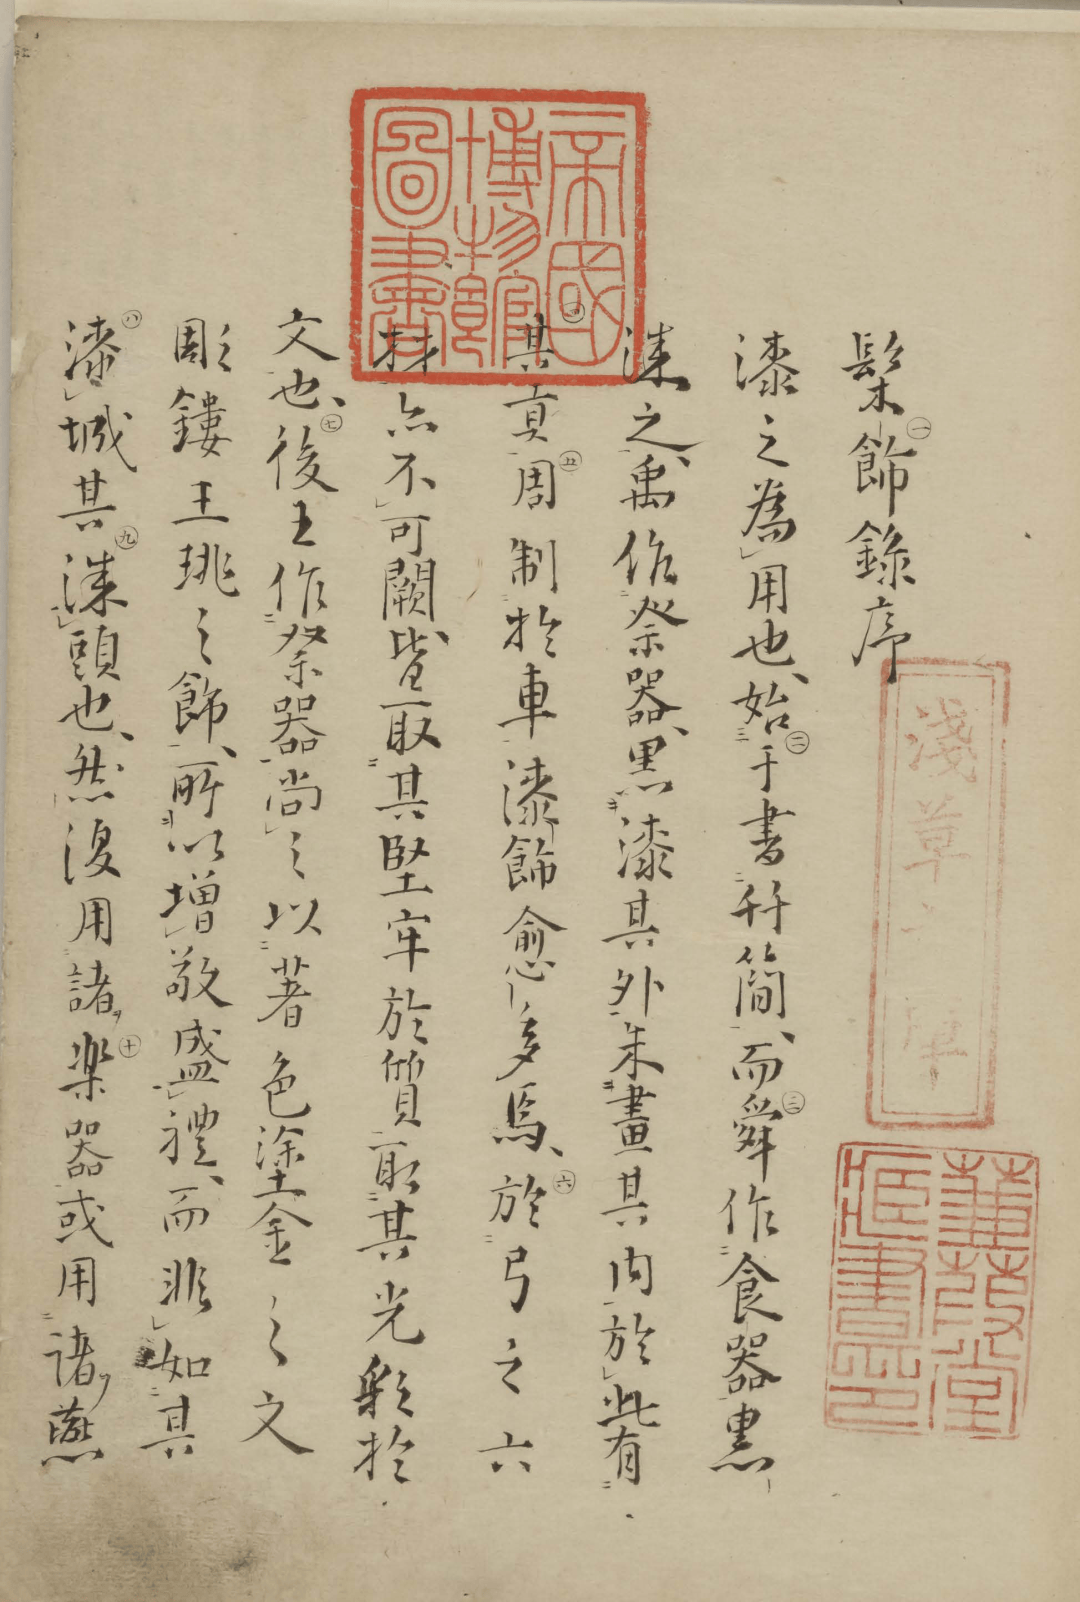 髹飾錄序
漆之為用也始于書竹簡而舜作食器黒
漆之禹作祭器黒漆其外朱畫其内於此有
其貢周制於車漆飾愈多焉於弓之六
材亦不可闕皆取其堅牢於質取其光彩於
文也後王作祭器尚之以著色塗金之文
彫鏤玉珧之飾所以増敬盛禮而非如其
漆城其漆頭也然復用諸樂器或用諸燕
帝國博物館圖書
淺草文庫
蒹葭堂藏書印
一
二
三
四
五
六
七
八
九
十